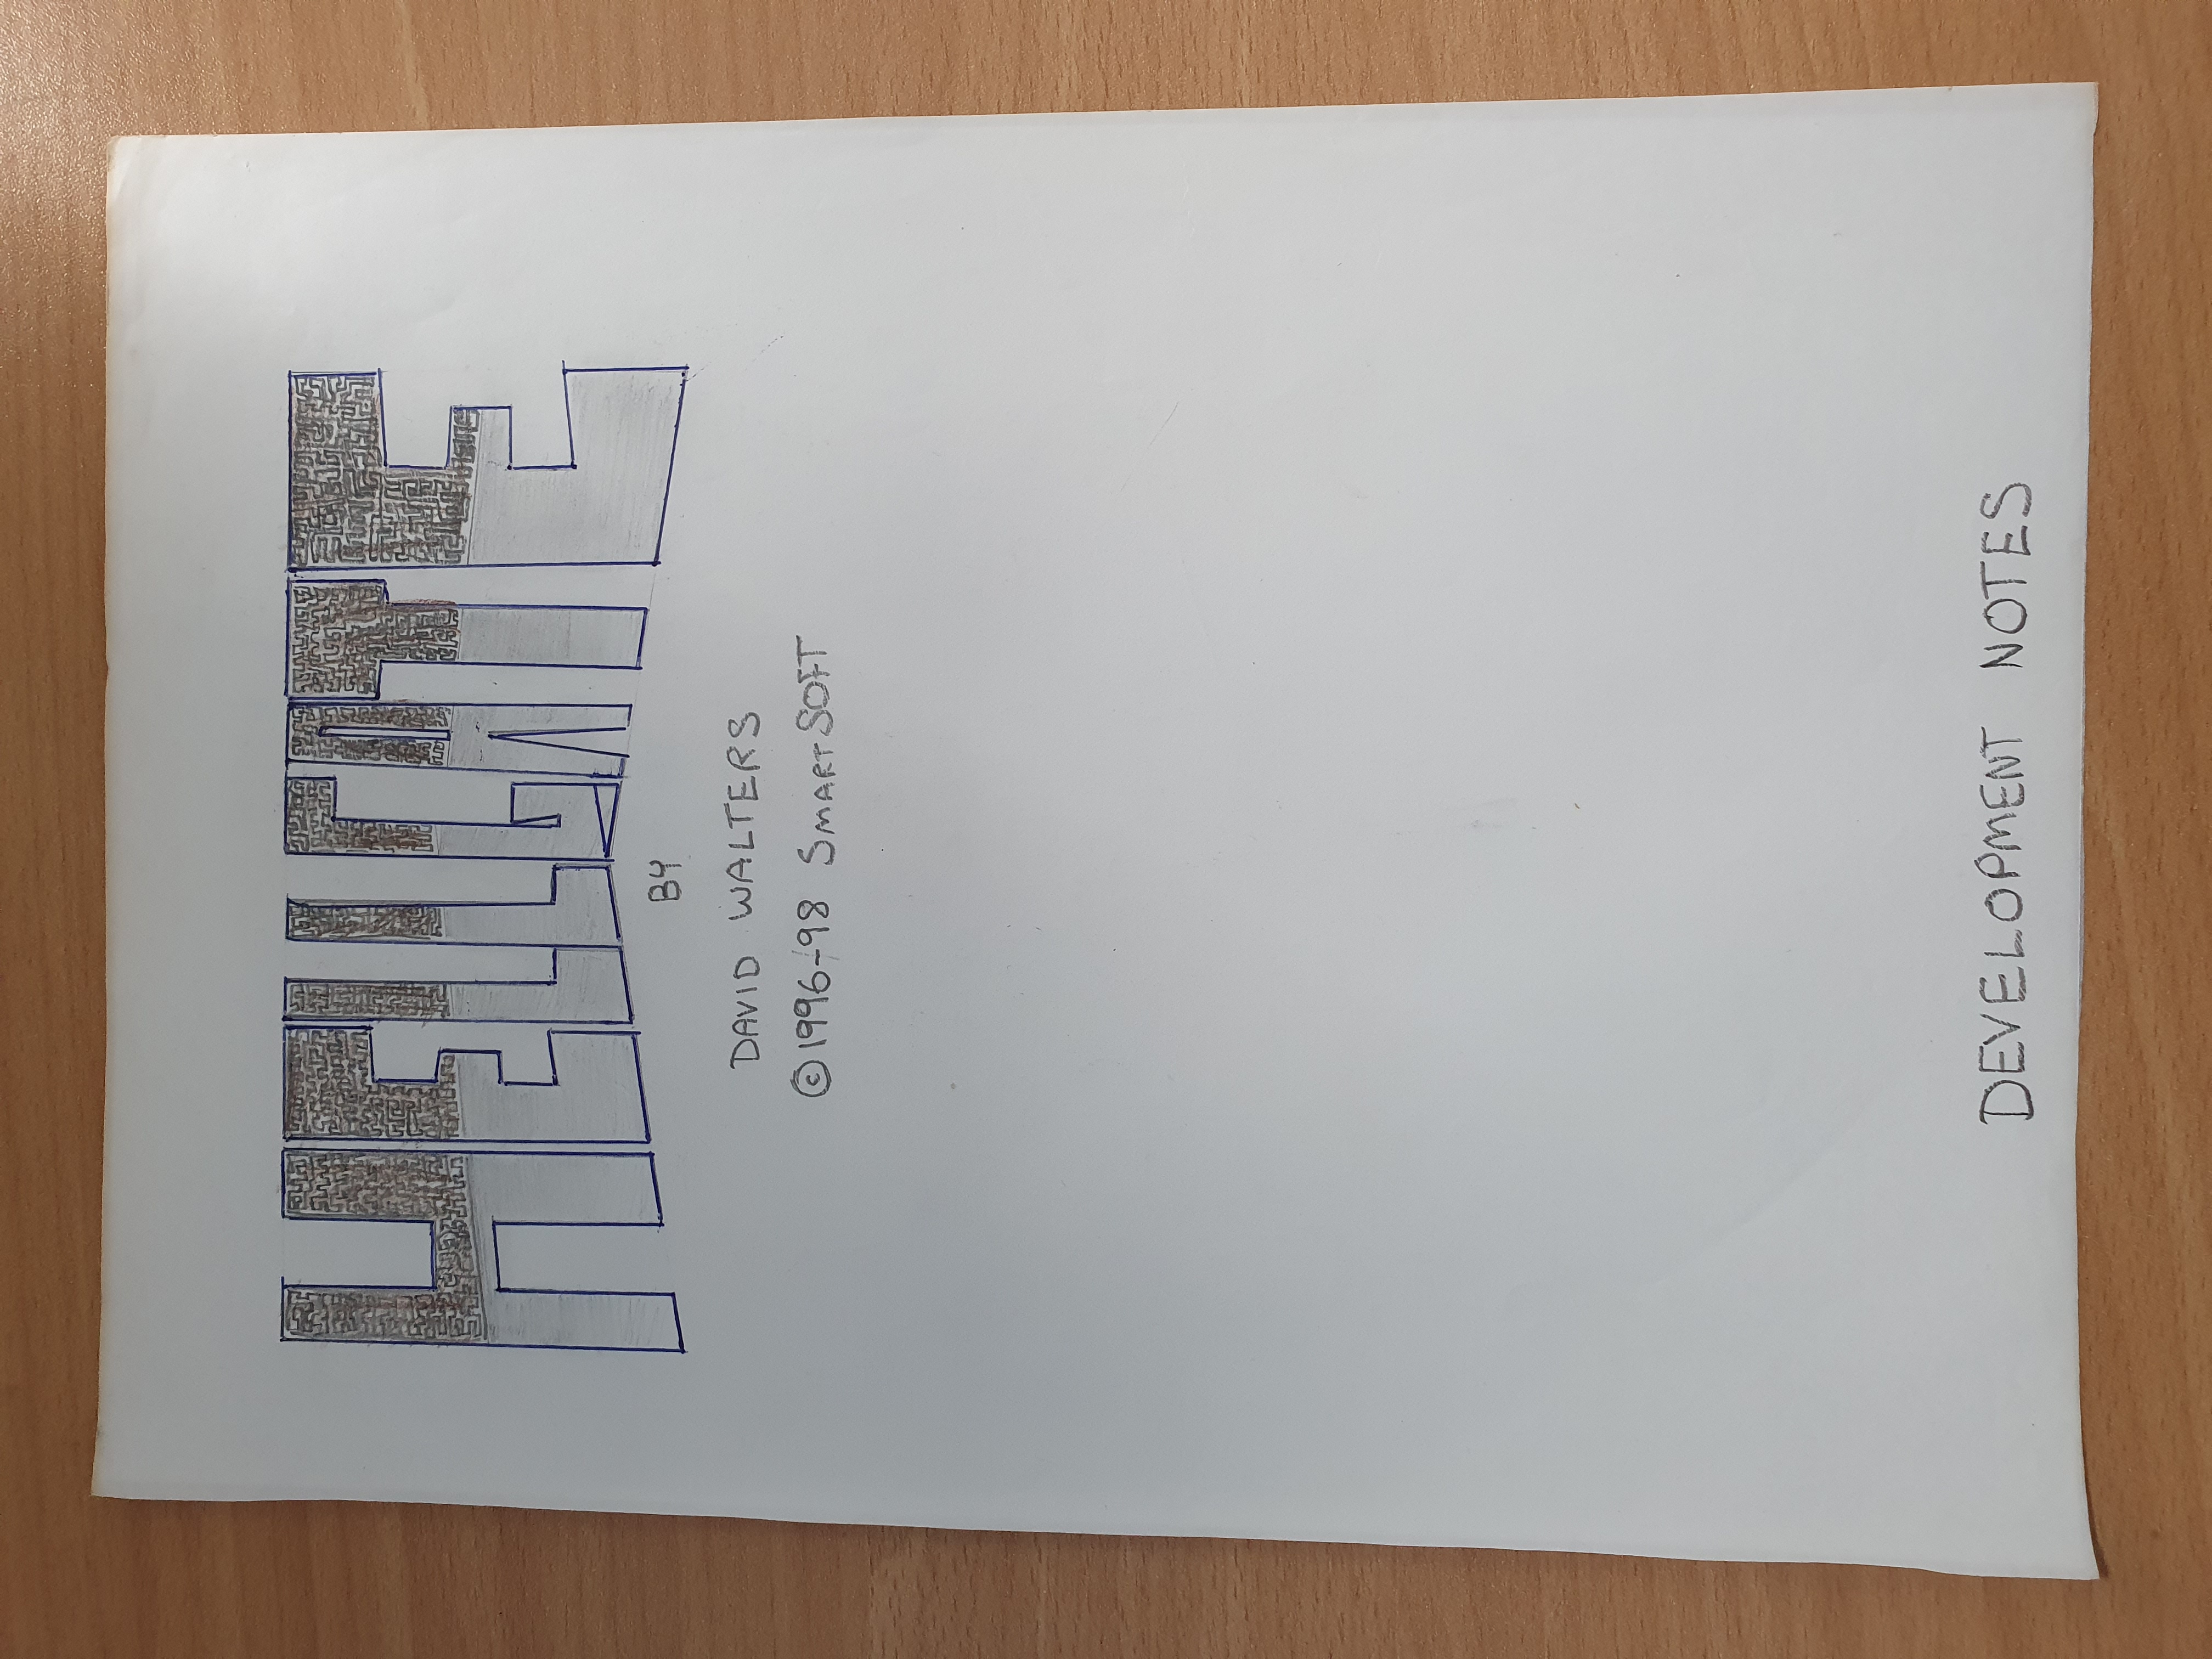 HELLGATE
BY
DAVID WALTERS
©1996-98 SMARTSOFT
DEVELOPMENT NOTES